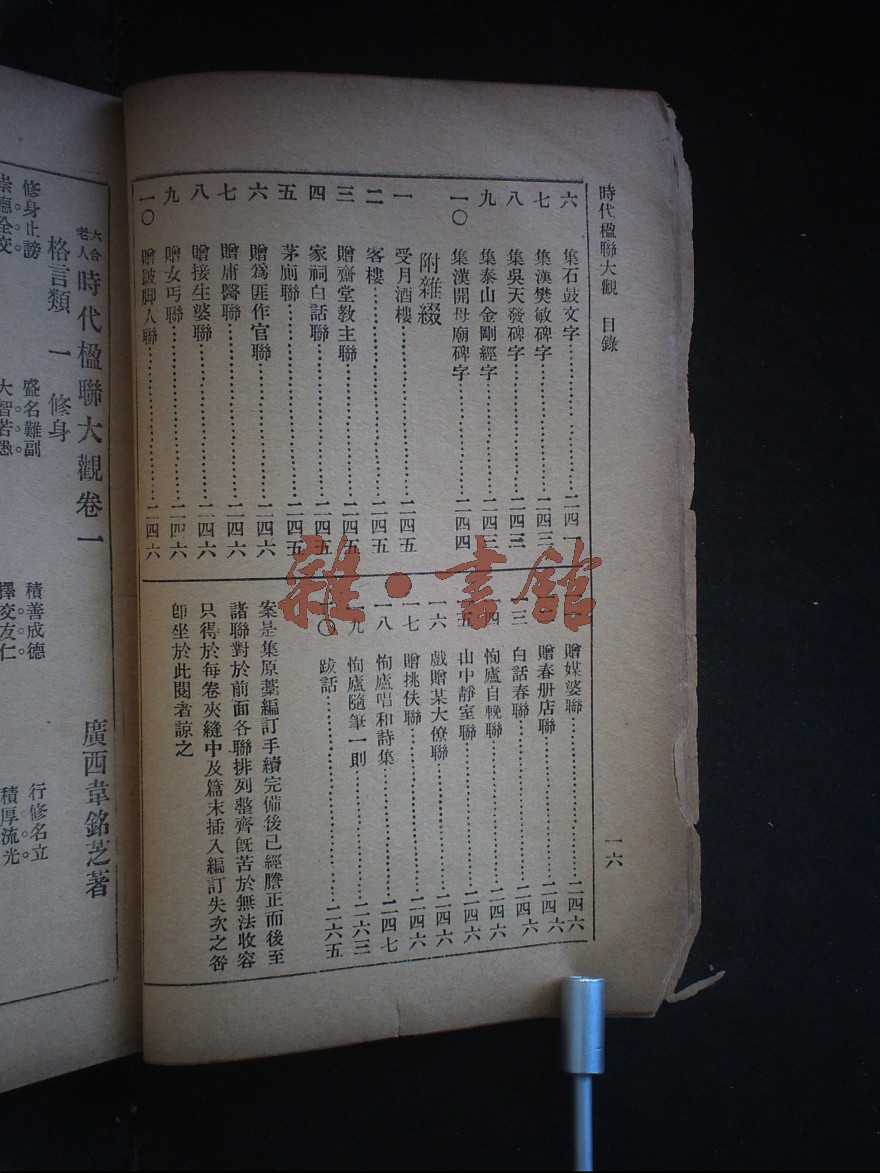 時代楹聯大觀 目錄 一六
六 集石鼓文字 二四一
七 集漢樊敏碑字 二四三
八 集吳天發碑字 二四三
九 集泰山金剛經字 二四三
一〇 集漢開母廟碑字 二四四
附雜綴
一 受月酒樓 二四五
二 客樓 二四五
三 贈齋堂教主聯 二四五
四 家祠白話聯 二四五
五 茅廁聯 二四五
六 贈爲匪作官聯 二四六
七 贈庸醫聯 二四六
八 贈接生婆聯 二四六
九 贈女丐聯 二四六
一〇 贈跛脚人聯 二四六
贈媒婆聯 二四六
贈春册店聯 二四六
三 白話春聯 二四六
四 恂廬自輓聯 二四六
五 山中靜室聯 二四六
一六 戲贈某大僚聯 二四六
一七 贈挑伕聯 二四六
一八 恂廬唱和詩集 二四七
一九 恂廬隨筆一則 二六三
二〇 跋話 二六五
案是集原藁編訂手續完備後已經謄正而後至
諸聯對於前面各聯排列整齊旣苦於無法收容
只得於每卷夾縫中及篇末插入編訂失次之咎
卽坐於此閱者諒之
大合老人 時代楹聯大觀卷一 廣西韋銘芝著
格言類 一 修身
修身止謗 盛名難副 積善成德 行修名立
崇德全交 大智若愚 擇交友仁 積厚流光
雜·書館